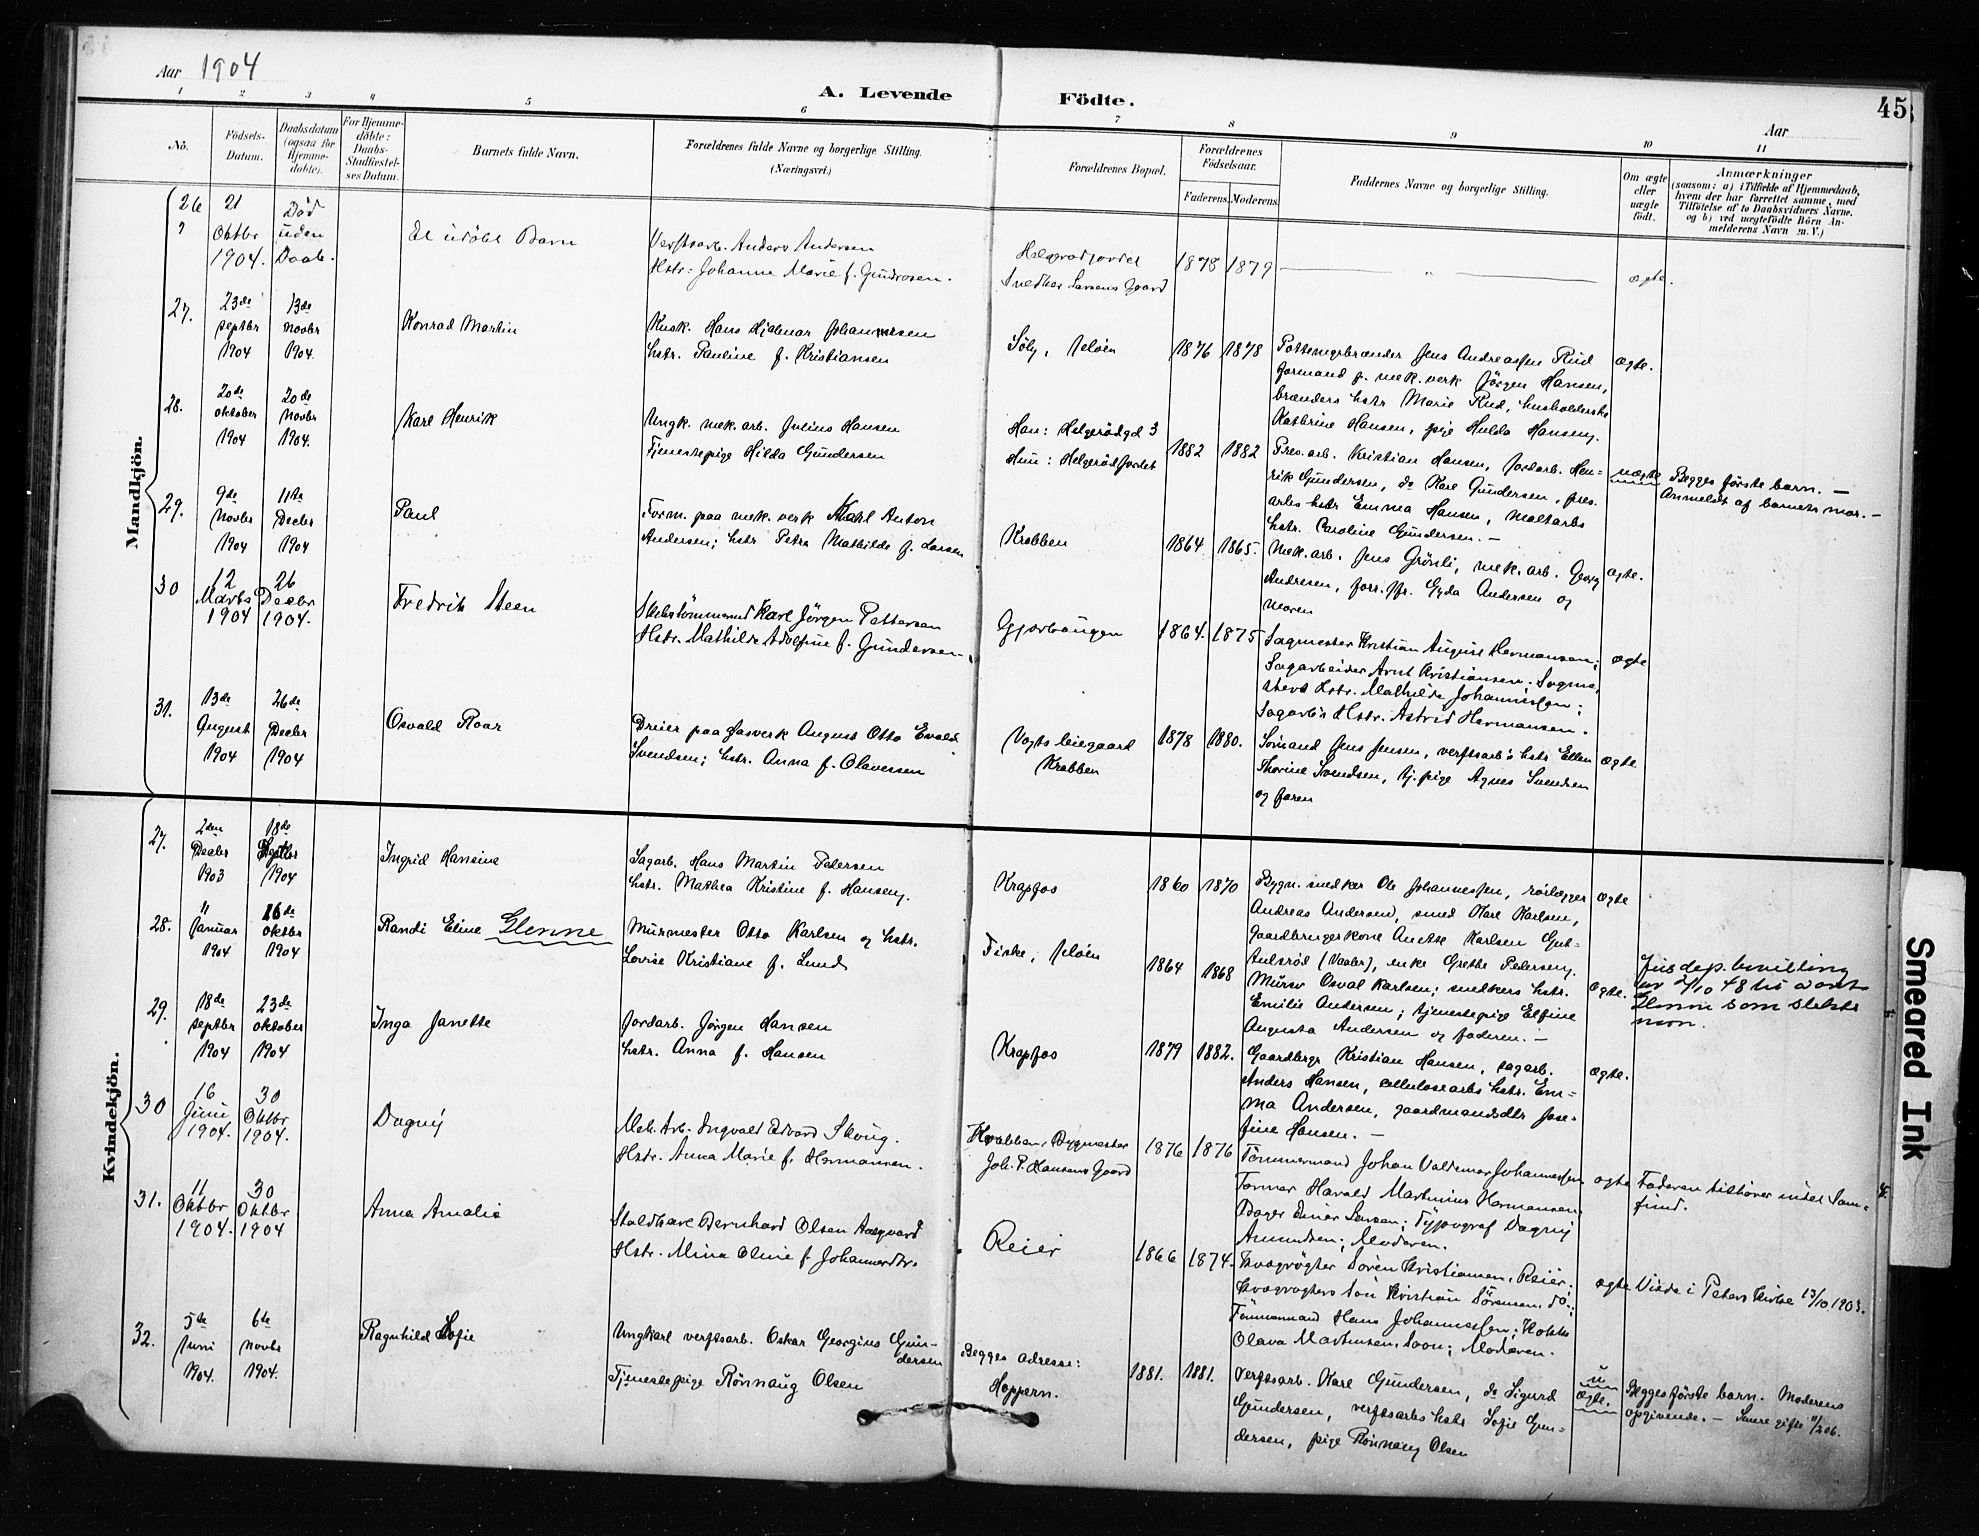 Aar 1904
A. Levende Födte.
Aar
45
1 2 3 4 5 6 7 8 9 10 11
No.
Födsels-
Datum.
Daabsdatum
(ogsaa for
Hjemme-
døbte).
For Hjemme-
døbte:
Daabs-
Stadfæstel-
ses Datum.
Barnets fulde Navn.
Forældrenes fulde Navne og borgerlige Stilling.
(Næringsvei.)
Forældrenes Bopæl.
Forældrenes
Födselsaar.
Faderens. Moderens.
Faddernes Navne og borgerlige Stilling.
Om ægte
eller
uægte
födt.
Anmærkninger
(saasom: a) i Tilfælde af Hjemmedaab,
hvem der har forrettet samme, med
Tilföielse af to Daabsvidners Navne.
og b) ved uegtefödte Börn An-
melderens Navn m. V.)
Mandkjön.
26
21
Oktbr
1904.
Död
uden
Daab.
Et udöbt Barn
Verftsarb. Anders Andersen
Hstr: Johanne Marie f. Gundersen.
Helgerödjordet
Snedker Larsens Gaard
1878 1879
ægte.
27.
23de
septbr
1904
13de
novbr
1904.
Konrad Martin
Kusk. Hans Hjalmar Johannesen
hstr. Pauline f. Kristiansen
Soly, Jeløen
1876 1878
Pottemagerbrænder Jens Andreassen Rud
formand p. mek. verk Jörgen Hansen,
brænders hstr Marie Rud, husholderske
Kathrine Hansen, pige Hulda Hansen.
ægte.
28.
20de
oktober
1904
20de
Novbr
1904.
Karl Henrik
Ungk. mek. arb. Julius Hansen
Tjenestepige Hilda Gundersen
Han: Helgerödgd 3
Hun: Helgerödjordet
1882 1882
Pres. arb. Kristian Hansen, jordarb. Hen-
rik Gundersen, do Karl Gundersen, pres.
arbs hstr Emma Hansen, Maltarbs
hstr. Caroline Gundersen. —
uægte
Begges förste barn. —
Anmeldt af barnets mor. —
29.
9de
Novbr
1904
11te
Decbr
1904
Paul
Form. paa mek. verk Karl Anton
Andersen; hstr Petra Mathilde f. Larsen
Krabben
1864 1865.
Mek. arb. Jens Grönli, mek. arb. Georg
Andresen, forr. fr. Gyda Andersen og
moren
ægte.
30
12
Marts
1904
26
Decbr
1904.
Fredrik Steen
Skibstömmermd Karl Jörgen Pettersen
Hstr. Mathilde Adolfine f. Gundersen
Gjerbougen
1864. 1875
Sagmester Kristian August Hermansen;
Sagarbeider Arnt Kristiansen; Sagme-
sters Hstr. Mathilde Johannessen;
Sagarb's Hstr. Astrid Hermansen.
ægte
31.
13de
August
1904
26de
Decbr
1904
Osvald Roar
Dreier paa Gasverk August Otto Evald
Svendsen; hstr. Anna f. Olavesen
Vogts leiegaard
Krabben
1878 1880.
Sömand Jens Jensen, verftsarb's hstr Ellen
Thorine Svendsen, tj. pige Agnes Svendsen
og faren
ægte
Kvindekjön.
27.
2den
Decbr
1903
18de
Septbr
1904
Ingrid Hansine
Sagarb. Hans Martin Petersen
hstr. Mathea Kristine f. Hansen.
Krapfos
1860 1870
Bygn. snedker Ole Johannessen, rörlægger
Andreas Andersen, smed Karl Karlsen,
gaardbrugerkone Anette Karlsen Gut-
tulsrød (Vaaler), enke Grethe Pedersen.
ægte
28.
11
Januar
1904
16de
oktbr
1904
Randi Eline Glenne
Murmester Otto Karlsen og hstr.
Lovise Kristiane f. Lund
Fiske, Jeløen
1864 1868
Mursv Osval Karlsen; snedkers hstr.
Emilie Andersen; tjenestepige Elfine
Augusta Andersen og faderen. —
ægte.
Jusdep. bevilling
av 2/10 48 til å ant
Glenne som slekts
navn.
29.
18de
septbr
1904
23de
oktober
1904
Inga Janette
Jordarb. Jörgen Hansen
hstr. Anna f. Hansen
Krapfos
1879 1882.
Gaardbrgr Kristian Hansen, sagarb.
Anders Hansen, cellulosearbs hstr. Em-
ma Andersen, gaardmandsdtr Jose-
fine Hansen. —
ægte.
30
16
Juni
1904.
30
Oktbr
1904.
Dagny
Mek. Arb. Ingvald Edvard Skoug.
Hstr. Anna Marie f. Hermansen.
Krabben, Bygmester
Joh. P. Hansens Gaard
1876 1876
Tömmermand Johan Valdemar Johannessen
Former Harald Martinius Hermansen;
Bager Einar Larsen; Typograf Dagny
Amundsen; Moderen.
ægte
Faderen tilhörer intet Sam-
fund.
31.
11
Oktbr
1904.
30
Oktbr
1904
Anna Amalie
Staldkarl Bernhard Olsen Aasgaard
Hstr. Mina Oline f. Johannesdtr.
Reier
1866 1874.
Kvægrögter Sören Kristiansen, Reier;
Kvægrögters Sön Kristian Sörensen, do;
Tömmermand Hans Johannessen; Kokke
Olava Martinsen, Soon; Moderen.
ægte
Viede i Peters Kirke 13/10 1903.
32.
5te
Juni
1904.
6te
novbr
1904.
Ragnhild Sofie
Ungkarl verftsarb. Oskar Georgius Gun-
dersen
Tjenestepige Rönnaug Olsen
Begges adresse:
Hoppern.
1881. 1881.
Verftsarb. Karl Gundersen, do Sigurd
Gundersen, verftsarbs hstr Sofie Gun-
dersen, pige Rönnaug Olsen
u
ægte.
Begges förste barn. Moderens
opgivende. — Senere gifte 11/2 06.
Smeared Ink